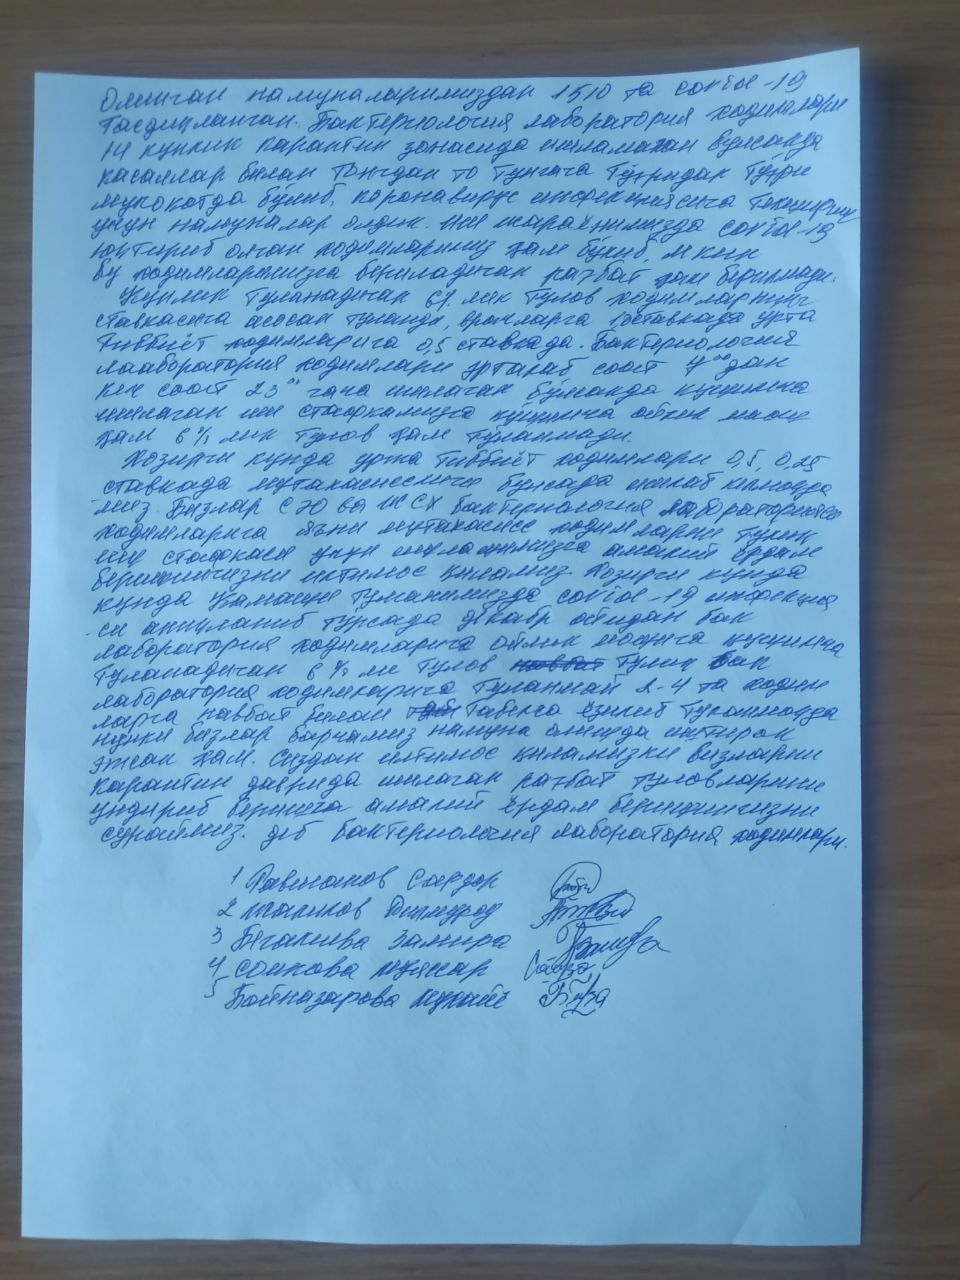 Олинган намуналаримиздан 1510 та covid-19
тасдиқланган. Бактериология лаборатория ходимлари
14 кунлик карантин зонасида ишламаган бўлсакда
касаллар билан тонгдан то тунгача тўғридан тўғри
мулоқотда бўлиб, коронавирус инфекциясига текшириш
учун намуналар олдик. иш жараёнимизда covid-19
юқтириб олган ходимларимиз ҳам бўлиб,
бу ходимларимизга бериладиган рағбат ҳам берилмади.
Кунлик тўланадиган 6% лик тўлов ходимларнинг
ставкасига асосан тўланди, врачларга ставкада ўрта
тиббиёт ходимларига 0,5 ставкада. Бактериология
лаборатория ходимлари эрталаб соат дан
кеч соат 23⁰⁰ гача ишлаган бўлсакда қўшимча
ишлаган иш ставкамизга қўшимча ойлик маош
ҳам 6% лик тўлов ҳам тўланмади.
Хозирги кунда ўрта тиббиёт ходимлари 0,5, 0,25
ставкада мутахассислиги бўлсада ишлаб келмоқда
-миз. Бизлар СЭО ва ЖСХ бактериология лабораторияси
ходимларига яъни мутахасис ходимларни тўлиқ
иш ставкаси учун ишлашимизга амалий ёрдам
беришингизни илтимос қиламиз. Хозирги кунда
кунда Қамаши туманимизда covid-19 инфекция
-си аниқланиб турсада декабр ойидан бак
лаборатория ходимларига ойлик маошга қўшимча
тўланадиган 6% ли тўлов тўлиқ бак
лаборатория ходимларига тўланмай 2-4 та ходим
ларга навбат билан табелга ёзилиб тўланмоқда
чунки бизлар барчамиз намуна олишда иштирок
этсак ҳам. Сиздан илтимос қиламизки бизларни
карантин даврида ишлаган рағбат тўловларини
ундириб беришга амалий ёрдам беришингизни
сўраймиз. деб бактериология лаборатория ходимлари.
1 Равшанов Сардор
2 Маликов Дилмурод
3 Бегалиева Замира
4 Соипова Муяссар
5 Бойназарова